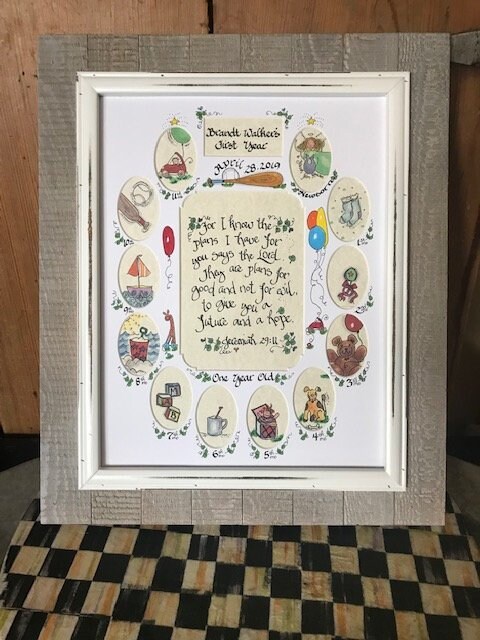 Brandt Walker's
First Year
April 28, 2019
Newborn
1st mo
2nd mo
3rd mo
4th mo
5th mo
6th mo
7th mo
8th mo
9th mo
10th
11th
For I know the
plans I have for
you says the Lord.
They are plans for
good and not for evil,
to give you a
future and a hope.
Jeremiah 29:11
One Year Old